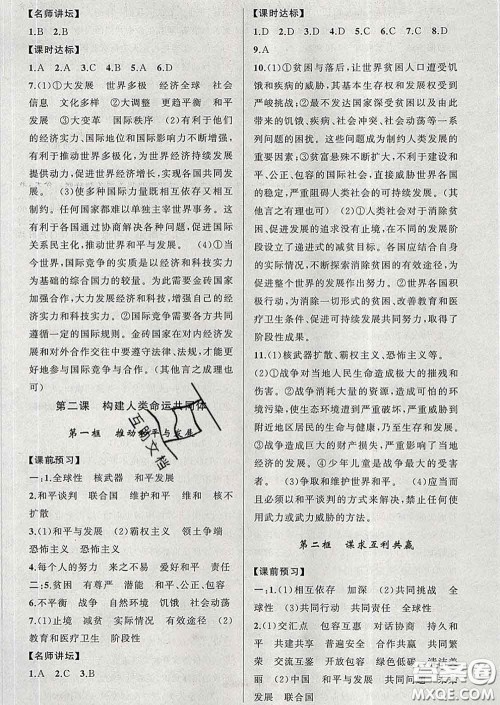 【名师讲坛】
1.B　2.B
【课时达标】
1.A　2.A　3.C　4.C　5.A　6.D
7.(1)①大发展　世界多极　经济全球　社会
信息　文化多样　②大调整　更趋平衡　和平
发展　③大变革　国际秩序　(2)有利于他们
的经济实力、国际地位和国际影响力不断增强,
有利于推动世界多极化,为世界经济持续发展
提供动力,促进世界经济增长,实现各国共同发
展。　(3)使多种国际力量既相互依存又相互
制约。任何国家都难以单独主宰世界事务。这
有利于各国通过协商解决各种问题,促进国际
关系民主化,推动世界和平与发展。　(4)①当
今世界,国际竞争的实质是以经济和科技实力
为基础的综合国力的较量。为此需要金砖国家
加强合作,大力发展经济和科技,增强自己的经
济实力和科技实力。②任何一种竞争与合作都
需要一定的国际规则。金砖国家在对内经济发
展与对外合作交往中要遵守法律、法规,才能更
好地参与国际竞争与合作。(其他言之有理也
可)
第二课　构建人类命运共同体
第一框　推动和平与发展
【课前预习】
一:1.全球性　核武器　和平发展
2.和平谈判　联合国　维护和平　维和　核不
扩散
3.(1)和平与发展　(2)霸权主义　领土争端
恐怖主义　恐怖主义
4.每个人的努力　来之不易　爱好和平　责任
二:5.贫困　有尊严　潜能　和平、公正、包容
6.不平衡　战争　自然环境　饥饿　社会动荡
7.(1)止境　减贫　实际情况　有效途径　(2)
教育和医疗卫生　阶段性
【名师讲坛】
1.A　2.C　3.B
【课时达标】
1.D　2.D　3.D　4.C　5.D　6.C　7.C　8.D
9.A
10.(1)①贫困与落后,让世界贫困人口遭受饥
饿和疾病的威胁,其基本生存权和发展权受到
严峻挑战;②贫困的存在严重阻碍发展以及由
此带来的饥饿、疾病、社会冲突、社会动荡等一
系列问题的困扰。这些问题成为制约人类发展
的共同因素;③贫富差距不断扩大,不利于建设
和平、公正、包容的国际社会,影响了世界的稳
定,严重阻碍人类社会的可持续发展。(其他言
之有理也可)　(2)①人类社会对于消除贫困、
促进发展的追求没有止境,在不同的发展阶
段设立了递进式的减贫目标。各国应结合自身
的实际情况,不断探索消除贫困的有效途径,为
促进整个世界的发展贡献力量。②在世界银
行、联合国开发计划署和各国政府的积极参与
下,为消除一切形式的贫困、改善教育和医疗卫
生状况、促进可持续发展共同努力,取得了一些
阶段性成果。
11.(1)核武器扩散、霸权主义、恐怖主义等。
(2)①战争对当地人民生命造成最残忍的威胁;
②战争消耗大量的资源,易造成环境污染,影响
附近地域居民的生命与健康,破坏生态环境;
③战争造成巨大的财产损失,严重威胁人们的
生存与发展;④少年儿童是战争最大的受害者。
(3)争取和维护和平。　(4)用和平谈判的方式来解决,尽可能限制使
用武力或武力威胁的方法。
第二框　谋求互利共赢
【课前预习】
一:1.(1)相互依存　加深　(2)共同挑战　全
球性　(3)共同行动　共同责任　全球性
2.(1)交汇点　包容互惠　对话协商　持久和
平　共建共享　普遍安全　合作共赢　共同繁
荣　交流互鉴　开放包容　绿色低碳　清洁美
丽　(2)中国　和平与发展　共同问题
发展　联合国
互助文档
答案圈
MXQE.COM